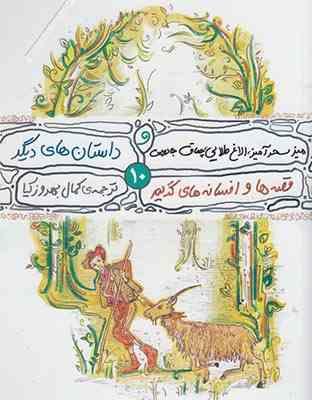 میز سحرآمیز، الاغ طلایی، چماق جهنده
و
داستان‌های دیگر
قصه‌ها و افسانه‌های گریم
۱۰
ترجمه‌ی کمال بهروز کیا